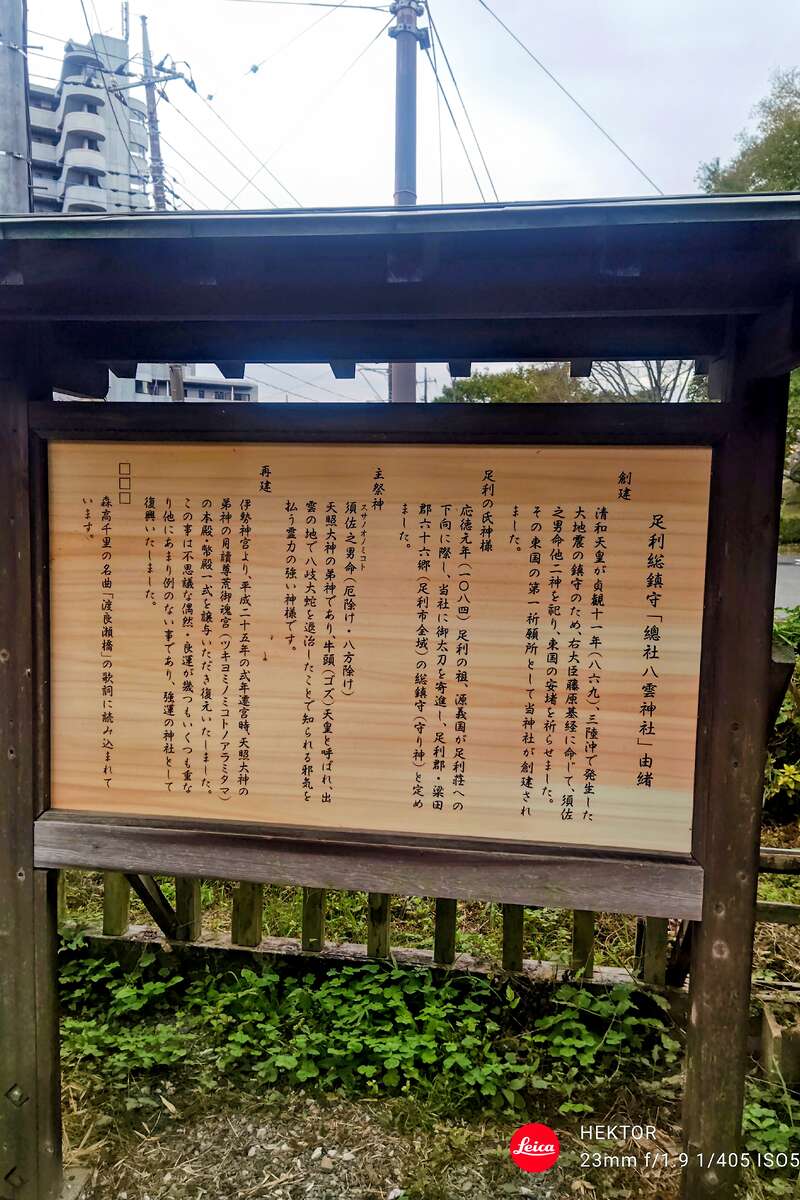 足利総鎮守「總社 八雲神社」由緒
創建
清和天皇が貞観十一年(八六九)、三陸沖で発生した
大地震の鎮守のため、右大臣藤原基経に命じて、須佐
之男命他二神を祀り、東国の安堵を祈らせました。
その東国の第一祈願所として当神社が創建され
ました。
足利の氏神様
応徳元年(一〇八四)足利の祖、源義国が足利荘への
下向に際し、当社に御太刀を寄進し、足利郡・梁田
郡六十六郷(足利市全域)の総鎮守(守り神)と定め
ました。
主祭神
スサノオノミコト
須佐之男命(厄除け・八方除け)
天照大神の弟神であり、牛頭(ゴズ)天皇と呼ばれ、出
雲の地で八岐大蛇を退治したことで知られる邪気を
払う霊力の強い神様です。
再建
伊勢神宮より、平成二十五年の式年遷宮時、天照大神の
弟神の月讀尊荒御魂宮(ツキヨミノミコトノアラミタマ)
の本殿・幣殿一式を譲与いただき復元いたしました。
この事は不思議な偶然・良運が幾つもいくつも重な
り他にあまり例のない事であり、強運の神社として
復興いたしました。
□□□
森高千里の名曲「渡良瀬橋」の歌詞に読み込まれて
います。
Leica
HEKTOR
23mm f/1.9 1/405 ISO5